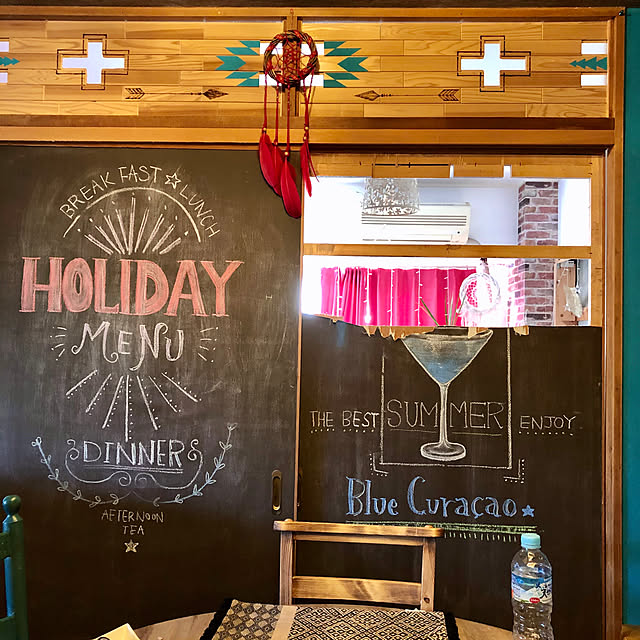 BREAK FAST ☆ LUNCH
HOLIDAY
MENU
DINNER
AFTERNOON
TEA
THE BEST SUMMER ENJOY
Blue Curaçao